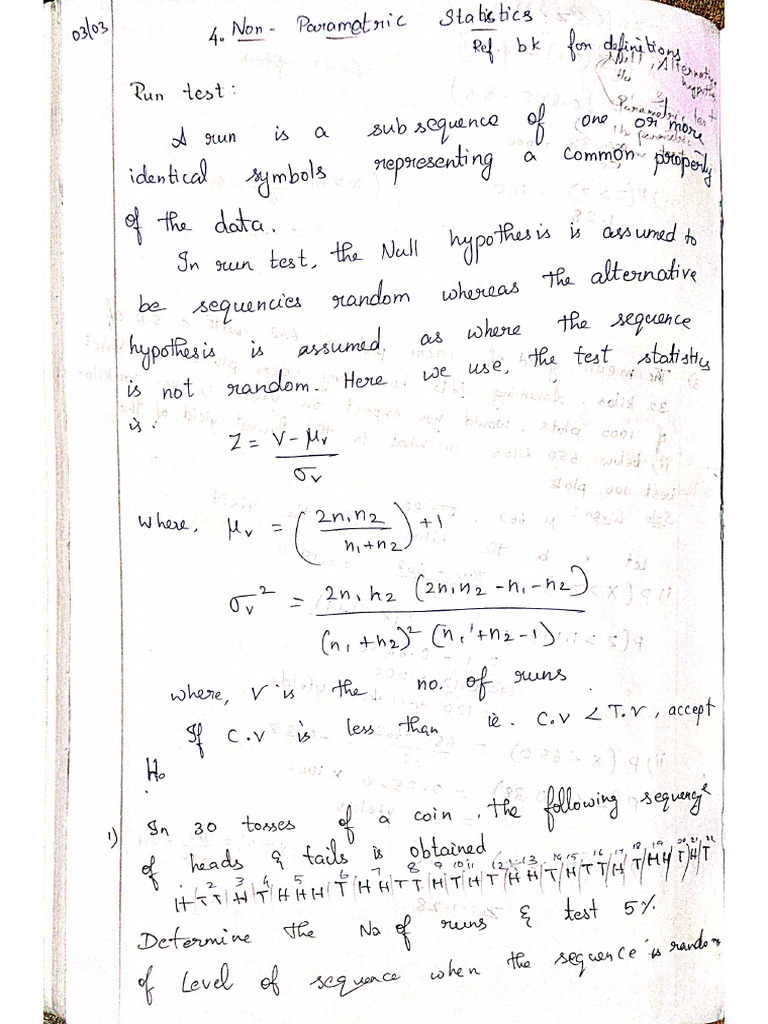 03/03
4. Non-Parametric Statistics
Ref. bk for definitions
Run test:
A run is a subsequence of one or more
identical symbols representing a common property
of the data.
In run test, the Null hypothesis is assumed to
be sequencies random whereas the alternative
hypothesis is assumed as where the sequence
is not random. Here we use, the test statistics
is.
Z = V - μv / σv
where, μv = (2n1n2 / n1+n2) + 1
σv² = 2n1n2 (2n1n2 - n1 - n2) / (n1+n2)² (n1+n2-1)
where, V is the no. of runs
If C.V is less than ie. C.V < T.V, accept
Ho
1) In 30 tosses of a coin, the following sequence
of heads & tails is obtained
2 3 4 5 6 7 8 9 10 11 12 13 14 15 16 17 18 19 20 21 22
H/TT/H/T/HHH/T/HH/TT/H/T/H/T/HH/T/H/TT/H/T/HH/T/H/T
Determine the No of runs & test 5%
of Level of sequence when the sequence is random